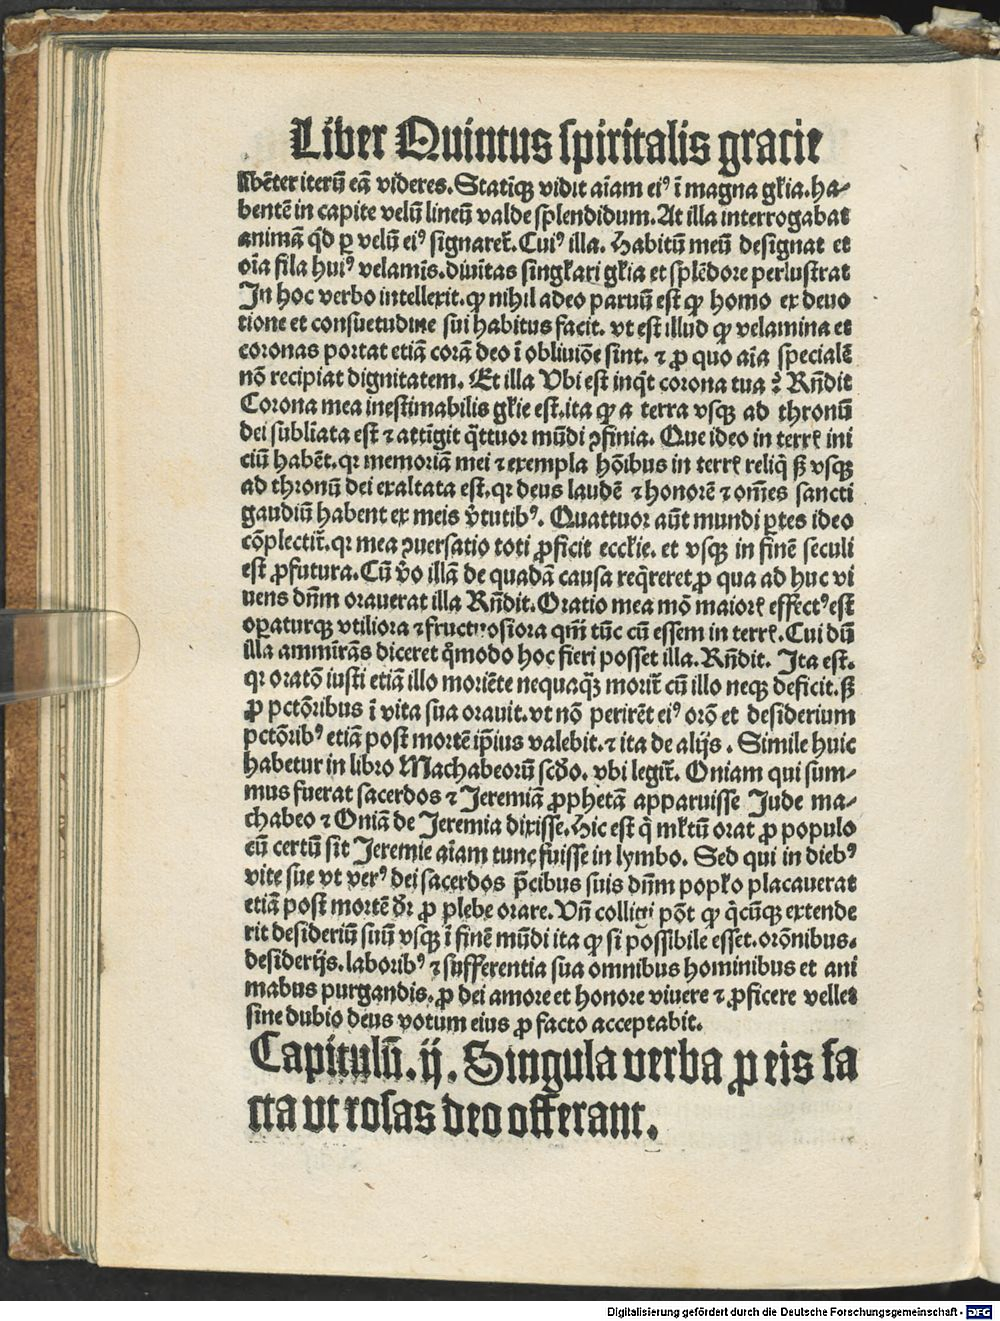 Liber Quintus spiritalis gracie
libēter iterū eā videres. Statīqꝫ vidit aīam eiꝰ ī magna gl̄ia. ha-
bentē in capite velū lineū valde splendidum. At illa interrogabat
animā qd̄ ꝑ velū eiꝰ signaret̄. Cuiꝰ illa. Habitū meū designat et
oīa fila huiꝰ velamīs. diuītas singl̄ari gl̄ia et splēdore perlustrat
In hoc verbo intellexit. ꝙ nihil adeo paruū est ꝙ homo ex deuo
tione et consuetudine sui habitus facit. vt est illud ꝙ velamina et
coronas portat etiā corā deo ī obliuiōe sint. ⁊ ꝓ quo aīa specialē
nō recipiat dignitatem. Et illa Vbi est inqͥt corona tua ? Rn̄dit
Corona mea inestimabilis gl̄ie est. ita ꝙ a terra vsqꝫ ad thronū
dei subliata est ⁊ attīgit qͣttuor mūdi ꝯfinia. Que ideo in terrꝭ ini
ciū habēt. qꝛ memoriā mei ⁊ exempla hōibus in terrꝭ reliqͥ sꝫ vsqꝫ
ad thronū dei exaltata est. qꝛ deus laudē ⁊ honorē ⁊ om̄es sancti
gaudiū habent ex meis v̄tutibꝰ. Quattuor aūt mundi ꝑtes ideo
cōplectit̄. qꝛ mea ꝯuersatio toti ꝓficit eccl̄ie. et vsqꝫ in finē seculi
est ꝓfutura. Cū v̄o illā de quadā causa reqͥreret ꝓ qua ad huc vi
uens dn̄m orauerat illa Rn̄dit. Oratio mea mō maiorꝭ effectꝰ est
oꝑaturqꝫ vtiliora ⁊ fructuosiora qm̄ tūc cū essem in terrꝭ. Cui dū
illa ammirās diceret qͦmodo hoc fieri posset illa. Rn̄dit. Ita est.
qꝛ oratō iusti etiā illo moriēte nequaqͣꝫ morit̄ cū illo neqꝫ deficit. sꝫ
ꝓ pctōribus ī vita sua orauit. vt nō perirēt eiꝰ orō et desiderium
pctōribꝰ etiā post mortē ip̄ius valebit. ⁊ ita de alijs. Simile huic
habetur in libro Machabeorū scd̄o. vbi legit̄. Oniam qui sum-
mus fuerat sacerdos ⁊ Jeremiā ꝓphetā apparuisse Jude ma-
chabeo ⁊ Oniā de Jeremia dixisse. Hic est qͥ ml̄tū orat ꝓ populo
cū certū sit Jeremie aīam tunc fuisse in lymbo. Sed qui in diebꝰ
vite sue vt verꝰ dei sacerdos p̄cibus suis dn̄m popl̄o placauerat
etiā post mortē dr̄ ꝓ plebe orare. Vn̄ colligi pōt ꝙ qͥcūqꝫ extende
rit desideriū suū vsqꝫ ī finē mūdi ita ꝙ si possibile esset. orōnibus.
desiderijs. laboribꝰ ⁊ sufferentia sua omnibus hominibus et ani
mabus purgandis. ꝓ dei amore et honore viuere ⁊ ꝓficere vellet
sine dubio deus votum eius ꝓ facto acceptabit.
Capitulū. ij. Singula verba ꝓ eis fa
cta ut rosas deo offerant.
Digitalisierung gefördert durch die Deutsche Forschungsgemeinschaft - DFG